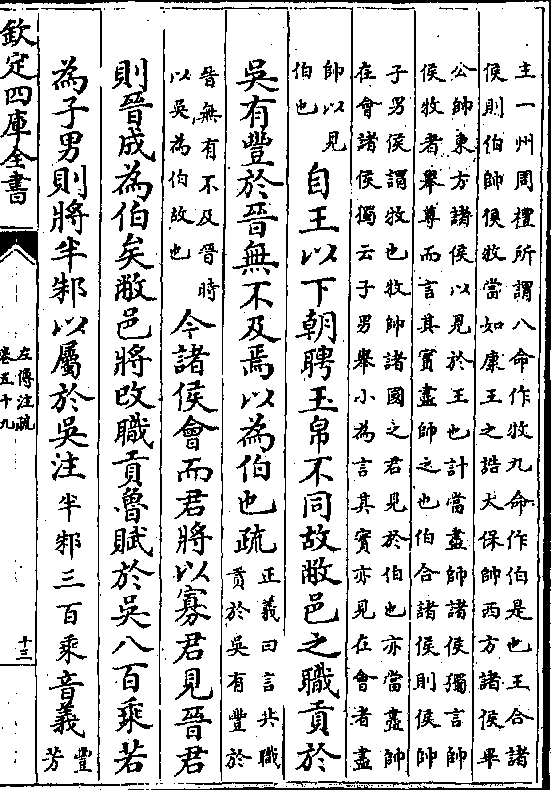 主一州周禮所謂八命作牧九命作伯是也王合諸
侯則伯帥侯牧當如康王之誥大保帥西方諸侯畢
公帥東方諸侯以見於王也計當盡帥諸侯獨言帥
侯牧者舉尊而言其實盡帥之也伯合諸侯則侯帥
子男侯謂牧也牧帥諸國之君見於伯也亦當盡帥
在會諸侯獨云子男舉小為言其實亦見在會者盡
帥以見
伯也
自王以下朝聘玉帛不同故敝邑之職貢於
吳有豐於晉無不及焉以為伯也疏
正義曰言共職
貢於吳有豐於
晉無有不及晉時
以吳為伯故也
今諸侯會而君將以寡君見晉君
則晉成為伯矣敝邑將改職貢魯賦於吳八百乘若
為子男則將半邾以屬於吳注
半邾三百乘
音義
豐
芳
欽定四庫全書
左傳注疏
卷五十九
十三